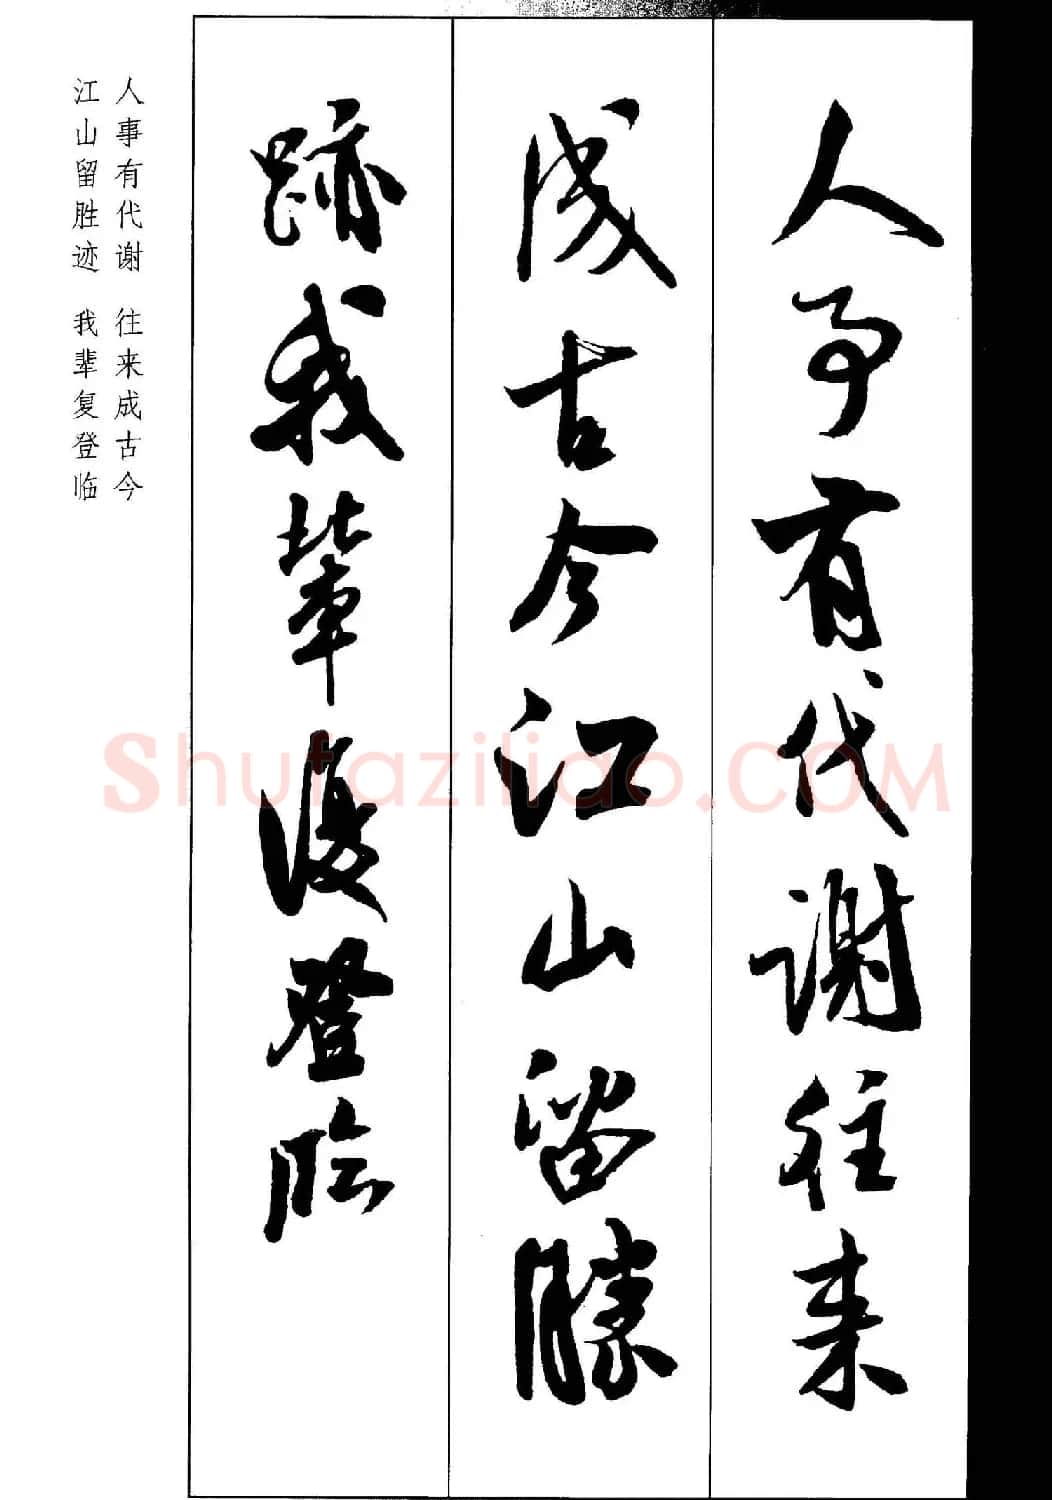 人事有代谢往来
成古今江山留勝
跡我輩復登临
人事有代谢 往来成古今
江山留胜迹 我辈复登临
Shufaziliao.COM